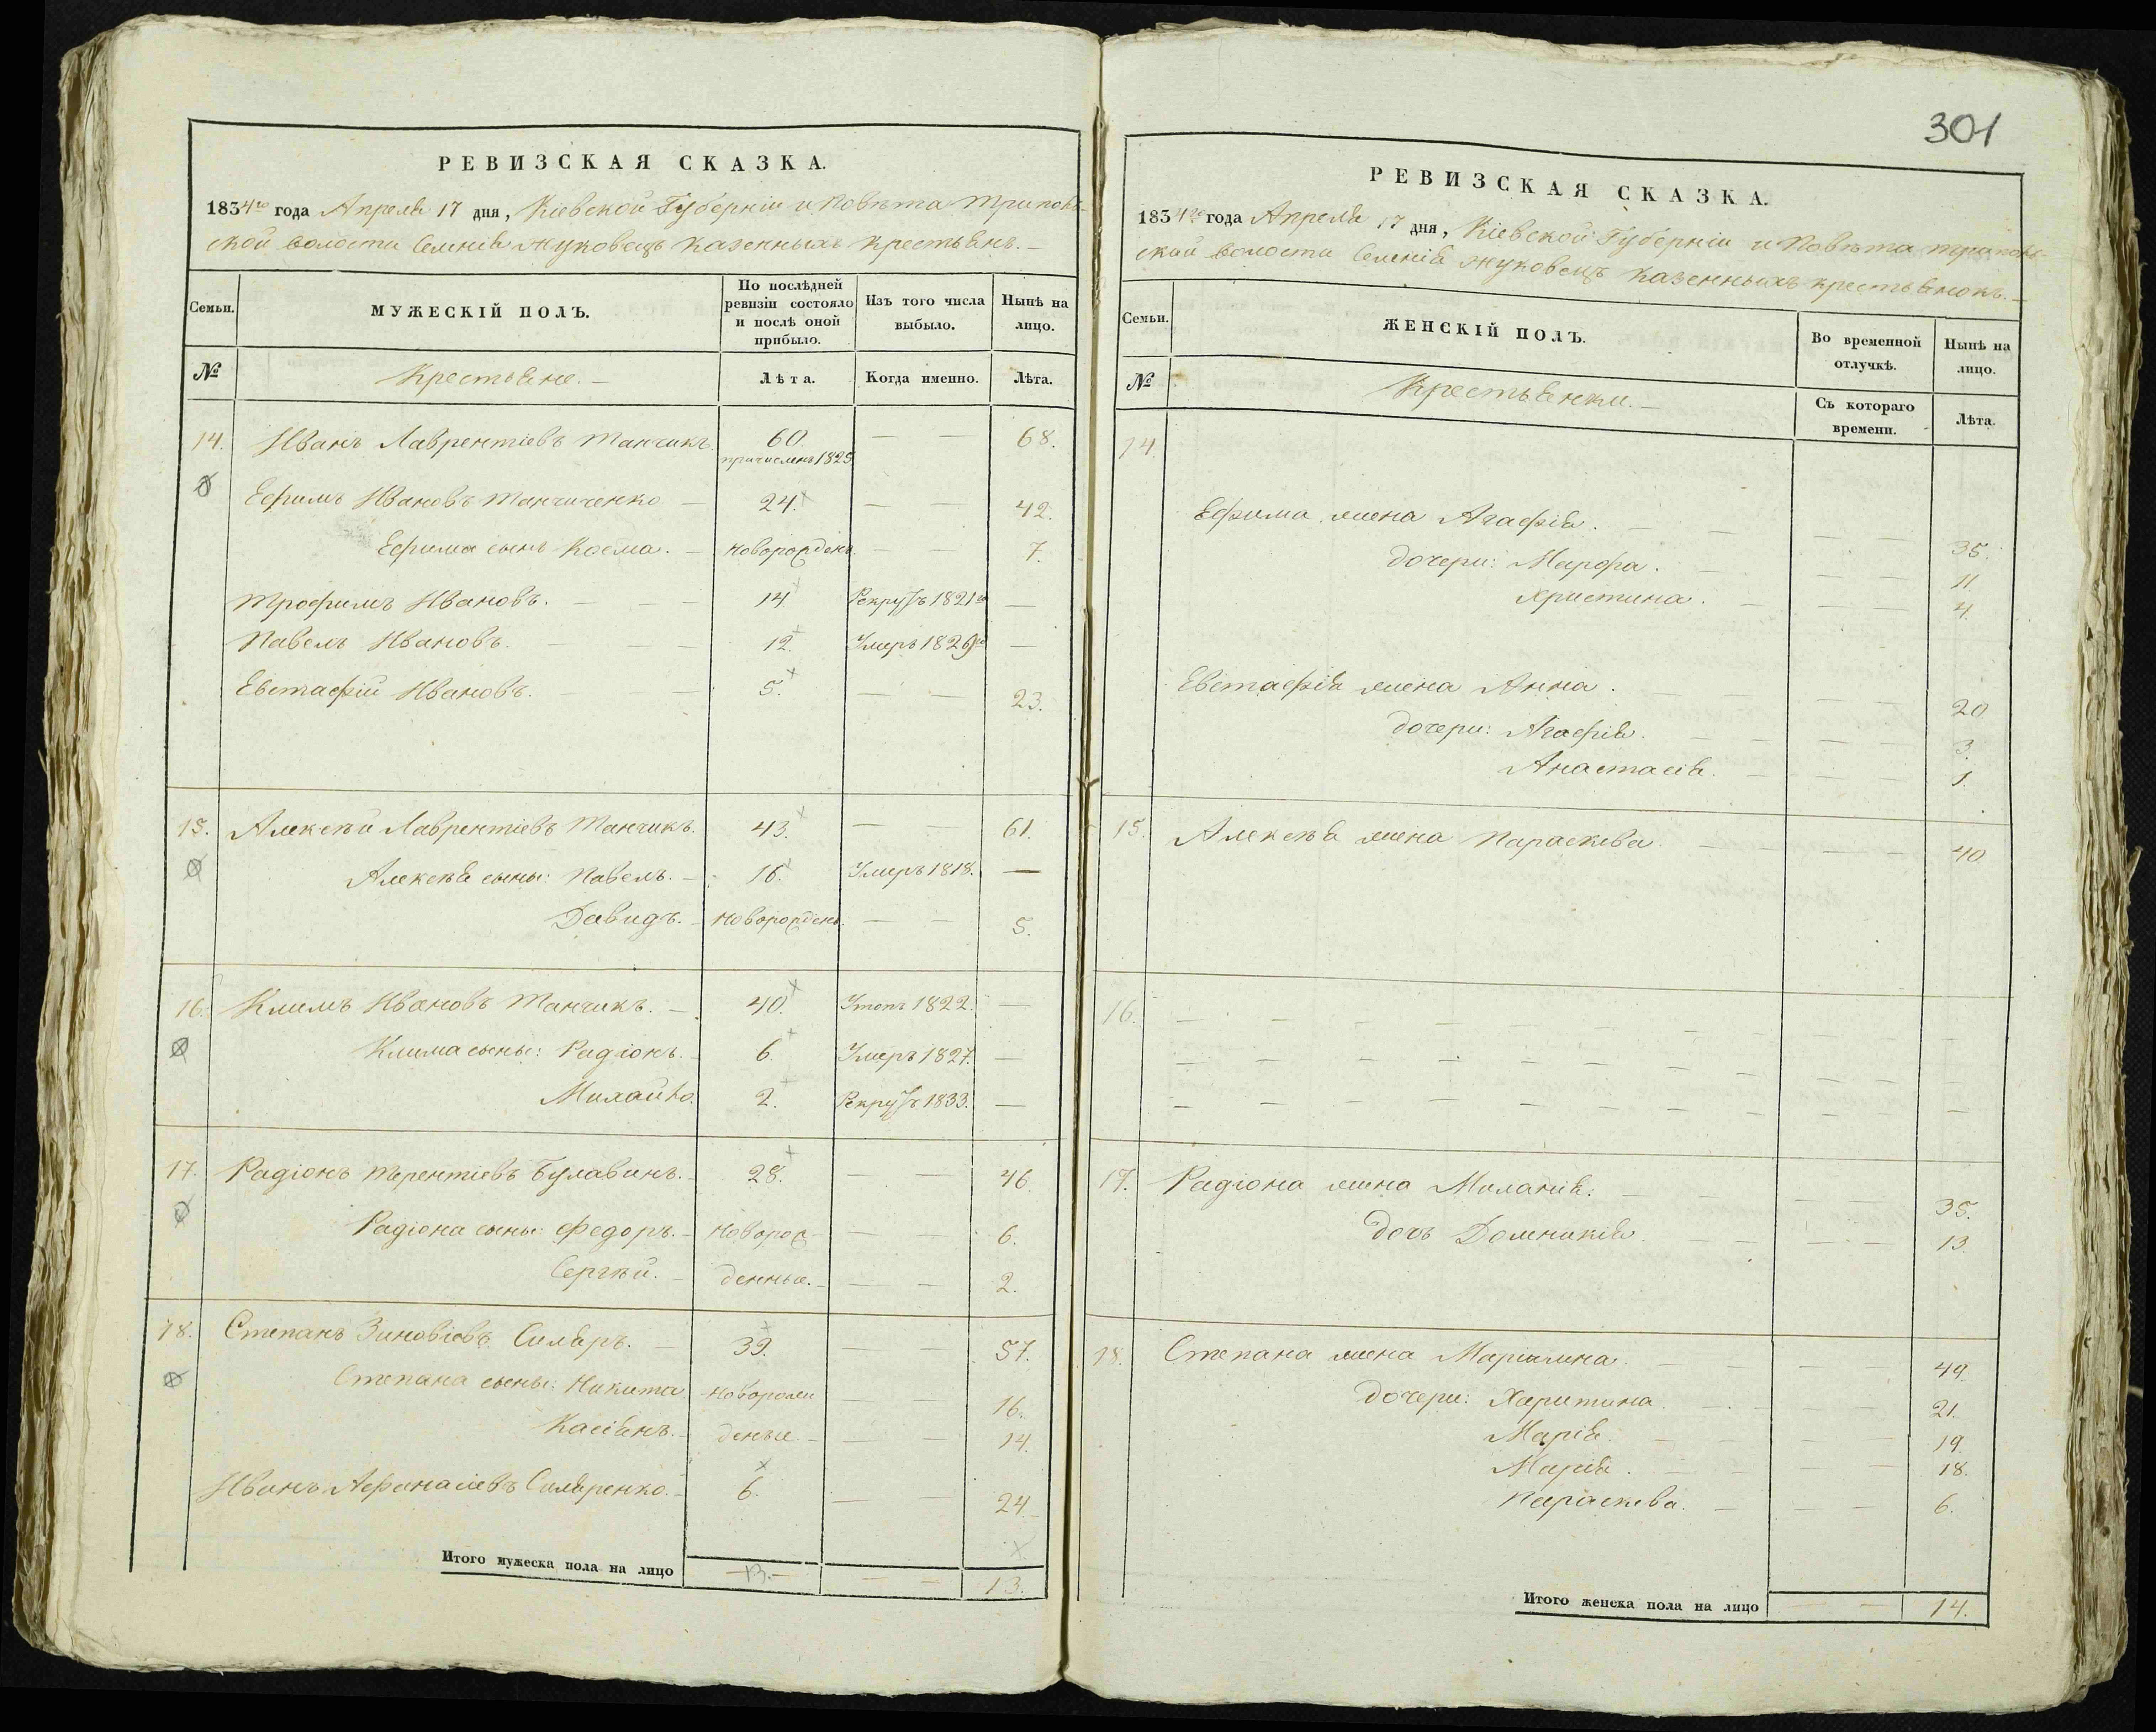 РЕВИЗСКАЯ СКАЗКА.
1834го года Апреля 17 дня, Кіевской Губерніи и Повѣта Трипол-
ской волости Селенія Жуковецъ казенныхъ крестьянъ. —
Семьи. МУЖЕСКІЙ ПОЛЪ. По послѣдней ревизіи состояло и послѣ оной прибыло. Изъ того числа выбыло. Нынѣ на лицо.
№ Крестьяне. — Лѣта. Когда именно. Лѣта.
14. Иванъ Лаврентіевъ Танчикъ. 60. — — 68.
причисленъ 1825
Ефимъ Ивановъ Танчиченко — 24. — — 42.
Ефима сынъ Косма. — новорожденъ. — — 7.
Трофимъ Ивановъ. — — — 14 Рекрутъ 1821го —
Павелъ Ивановъ. — — — 12. Умеръ 1826го —
Евстафій Ивановъ. — — 5. — — 23.
15. Алексѣй Лаврентіевъ Танчикъ. 43. — — 61.
Алексѣя сыны: Павелъ. — 16. Умеръ 1818. —
Давидъ. — новорожденъ. — — 5.
16. Климъ Ивановъ Танчикъ. — 40. Утопъ 1822. —
Клима сыны: Радіонъ. — 6. Умеръ 1827. —
Михайло. 2. Рекрутъ 1833. —
17. Радіонъ Терентіевъ Булавинъ. — 28. — — 46.
Радіона сыны: Федоръ. — новорож- — — 6.
Сергѣй. — денные. — — — 2.
18. Степанъ Зиновіевъ Силяръ. — 39. — — 57.
Степана сыны: Никита новорож — — 16.
Касіянъ. — деные. — — — 14.
Иванъ Афанасіевъ Силяренко. — 6. — — 24.
Итого мужеска пола на лицо — 13. — — — 13.
301
РЕВИЗСКАЯ СКАЗКА.
1834го года Апреля 17 дня, Кіевской Губерніи и Повѣта Трипол-
ской волости Селенія Жуковецъ казенныхъ крестьянокъ. —
Семьи. ЖЕНСКІЙ ПОЛЪ. Во временной отлучкѣ. Нынѣ на лицо.
№ Крестьянки. — Съ котораго времени. Лѣта.
14.
Ефима жена Агафія. — — — — 35.
дочери: Марфа. — — — 11.
Христина. — — — 4.
Евстафія жена Анна. — — — — 20
дочери: Агафія. — — — — 3.
Анастасія. — — — 1.
15. Алексѣя жена Параскева — — — — 40
16. — — — — — — — — — — —
— — — — — — — — — — —
— — — — — — — — — — —
17. Радіона жена Миланія: — — — — 35.
дочъ Домникія. — — — — 13
18. Степана жена Маріамна. — — — — 49.
дочери: Харитина. — — — — 21.
Марія. — — — 19.
Марія. — — — 18.
Параскева. — — — 6.
Итого женска пола на лицо — — 14.